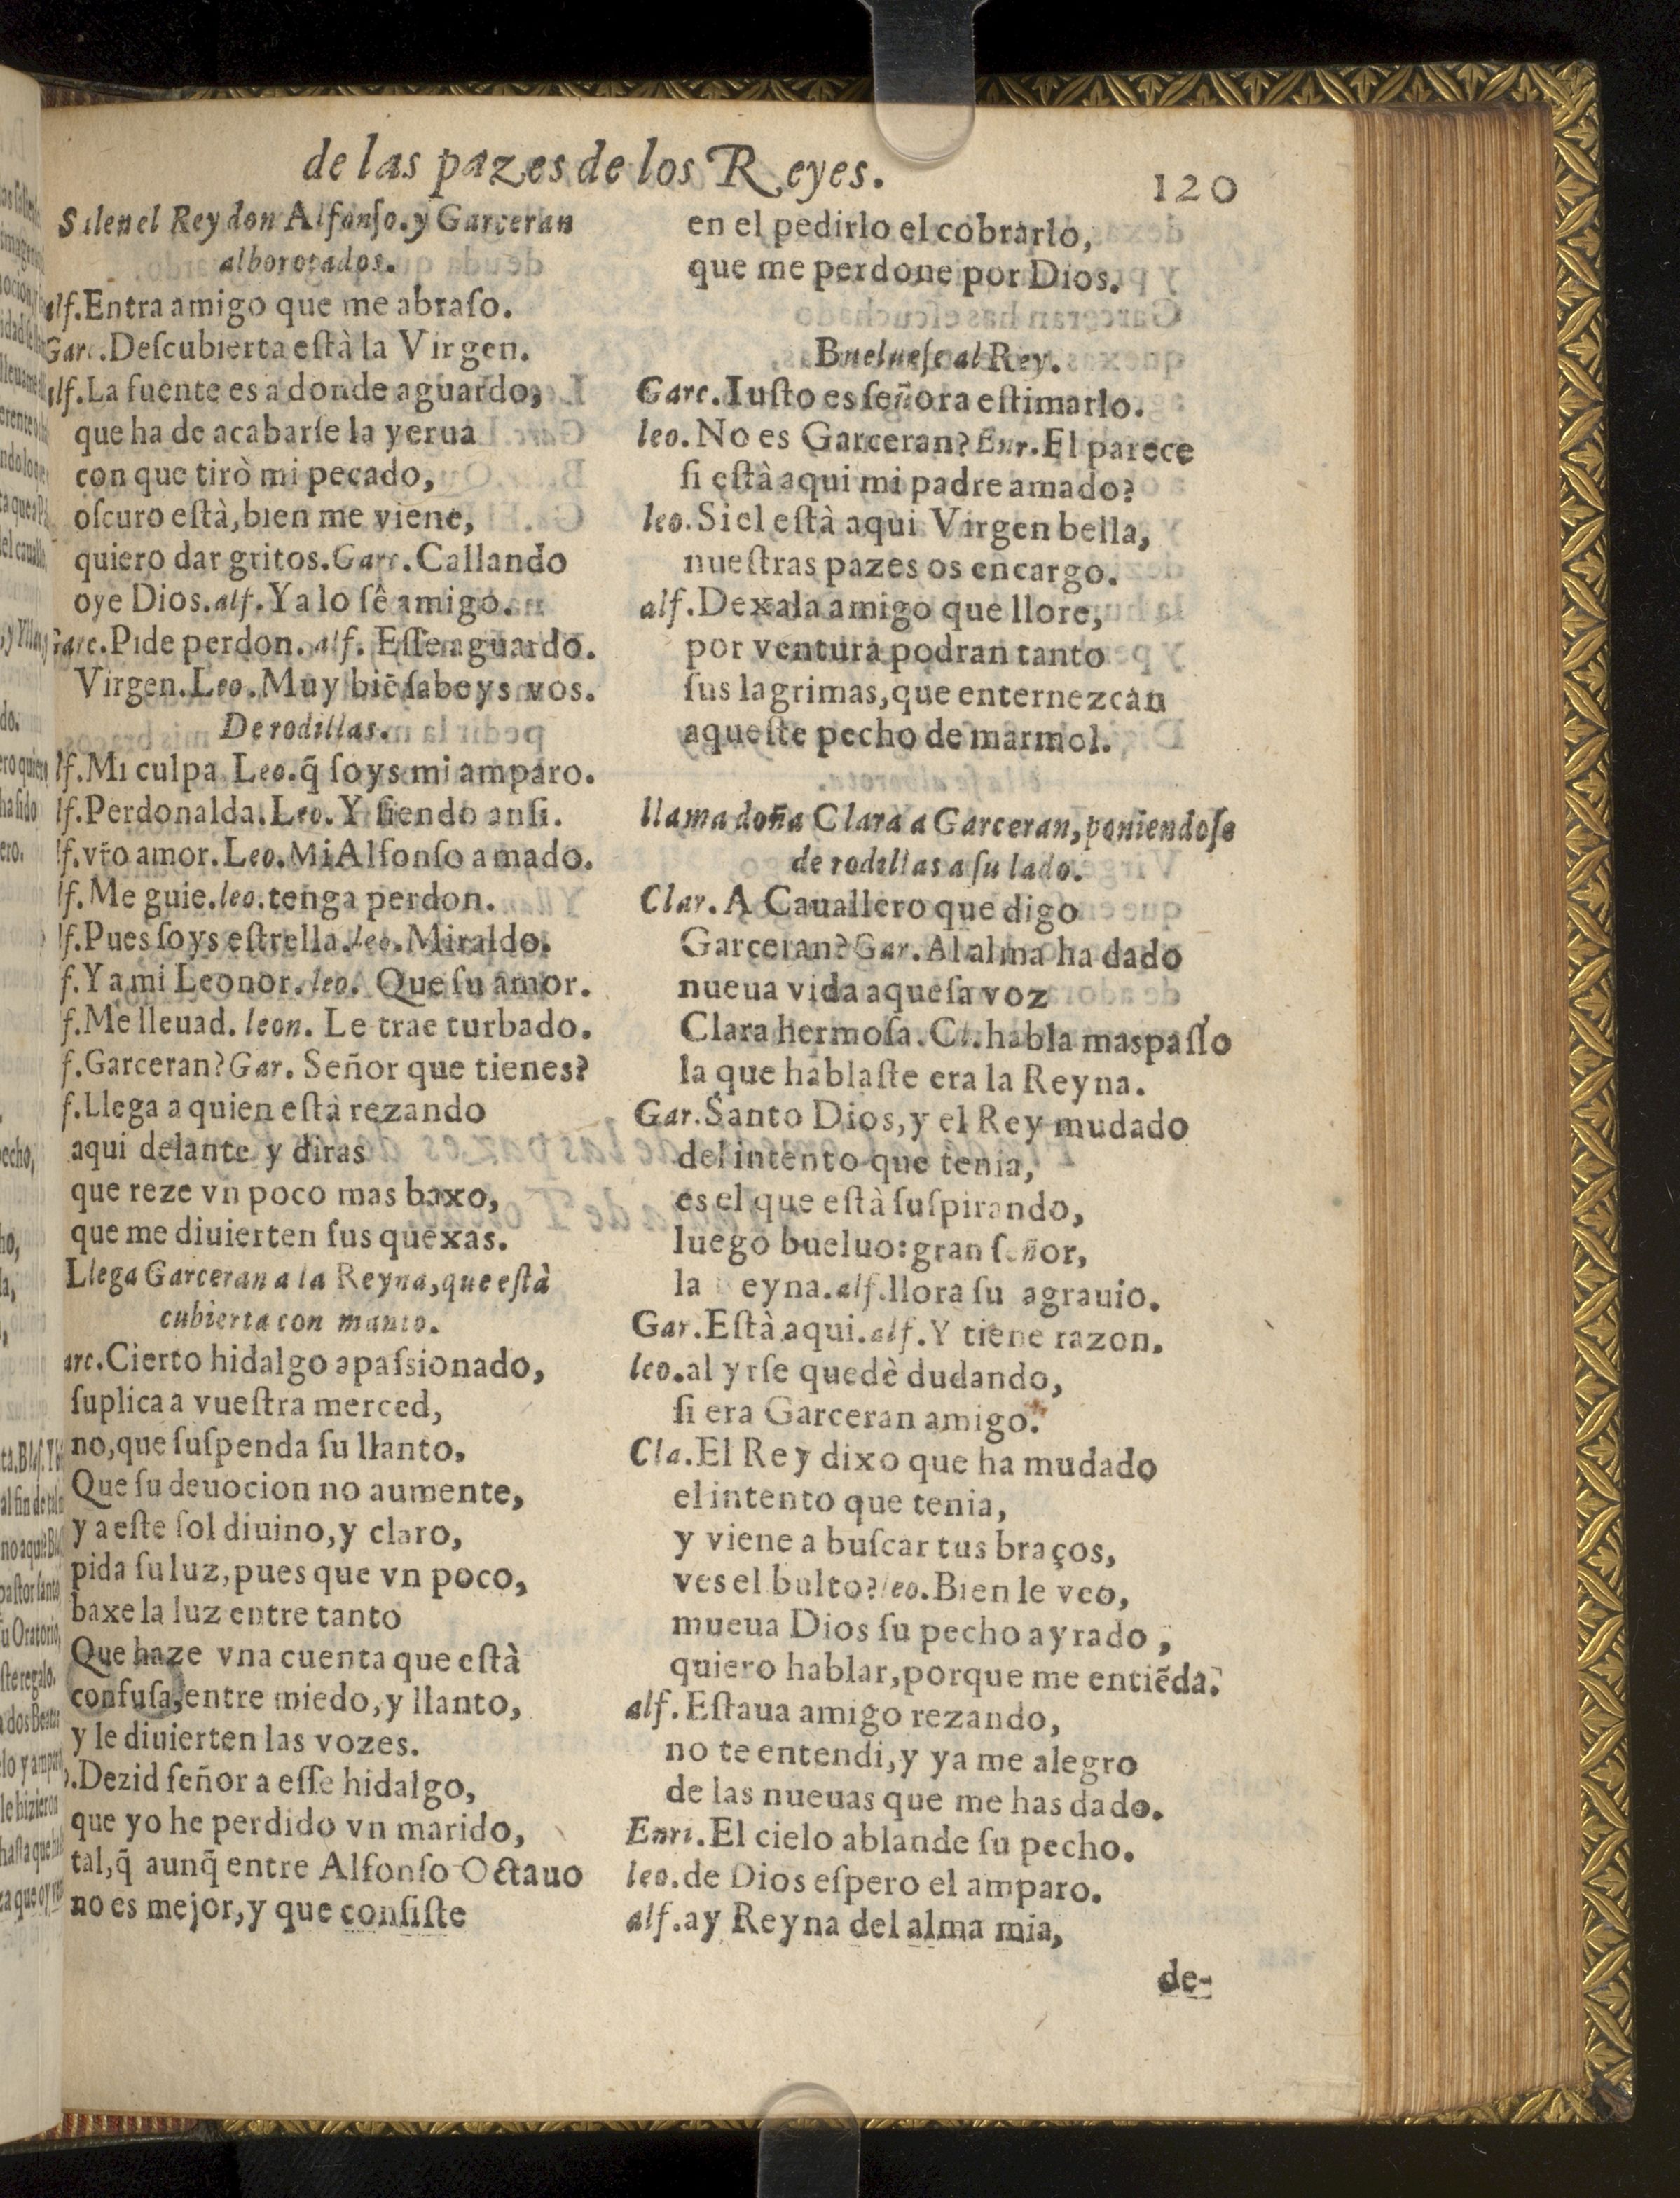 de las pazes de los Reyes.
120
Salen el Rey don Alfonſo. y Garceran
alborotados.
alf. Entra amigo que me abraſo.
Garc. Deſcubierta eſtà la Virgen.
alf. La fuente es a donde aguardo,
que ha de acabarſe la yerua
con que tirò mi pecado,
oſcuro eſtà, bien me viene,
quiero dar gritos. Garc. Callando
oye Dios. alf. Ya lo ſê amigo.
Garc. Pide perdon. alf. Eſſe aguardo.
Virgen. Leo. Muy biē ſabeys vos.
De rodillas.
lf. Mi culpa. Leo. q̃ ſoys mi amparo.
lf. Perdonalda. Leo. Y ſiendo anſi.
lf. vr̃o amor. Leo. Mi Alfonſo amado.
lf. Me guie. leo. tenga perdon.
lf. Pues ſoys eſtrella. leo. Miraldo.
f. Y a mi Leonor. leo. Que ſu amor.
f. Me lleuad. leon. Le trae turbado.
f. Garceran? Gar. Señor que tienes?
f. Llega a quien eſtà rezando
aqui delante y diras
que reze vn poco mas baxo,
que me diuierten ſus quexas.
Llega Garceran a la Reyna, que eſtà
cubierta con manto.
arc. Cierto hidalgo apaſsionado,
ſuplica a vueſtra merced,
no, que ſuſpenda ſu llanto,
Que ſu deuocion no aumente,
y a eſte ſol diuino, y claro,
pida ſu luz, pues que vn poco,
baxe la luz entre tanto
Que haze vna cuenta que eſtà
confuſa, entre miedo, y llanto,
y le diuierten las vozes.
o. Dezid ſeñor a eſſe hidalgo,
que yo he perdido vn marido,
tal, q̃ aunq̃ entre Alfonſo Octauo
no es mejor, y que conſiſte
en el pedirlo el cobrarlo,
que me perdone por Dios.
Bueluеſe al Rey.
Garc. Iuſto es ſeñora eſtimarlo.
leo. No es Garceran? Enr. El parece
ſi eſtà aqui mi padre amado?
leo. Si el eſtà aqui Virgen bella,
nueſtras pazes os encargo.
alf. Dexala amigo que llore,
por ventura podran tanto
ſus lagrimas, que enternezcan
aqueſte pecho de marmol.
llama doña Clara a Garceran, poniendoſe
de rodillas a ſu lado.
Clar. A Cauallero que digo
Garceran? Gar. Al alma ha dado
nueua vida aqueſa voz
Clara hermoſa. Cl. habla mas paſſo
la que hablaſte era la Reyna.
Gar. Santo Dios, y el Rey mudado
del intento que tenia,
es el que eſtà ſuſpirando,
luego bueluo: gran ſeñor,
la eyna. alf. llora ſu agrauio.
Gar. Eſtà aqui. alf. Y tiene razon.
leo. al yrſe quedè dudando,
ſi era Garceran amigo.
Cla. El Rey dixo que ha mudado
el intento que tenia,
y viene a buſcar tus braços,
ves el bulto? leo. Bien le veo,
mueua Dios ſu pecho ayrado,
quiero hablar, porque me entiẽda.
alf. Eſtaua amigo rezando,
no te entendi, y ya me alegro
de las nueuas que me has dado.
Enri. El cielo ablande ſu pecho.
leo. de Dios eſpero el amparo.
alf. ay Reyna del alma mia,
de-